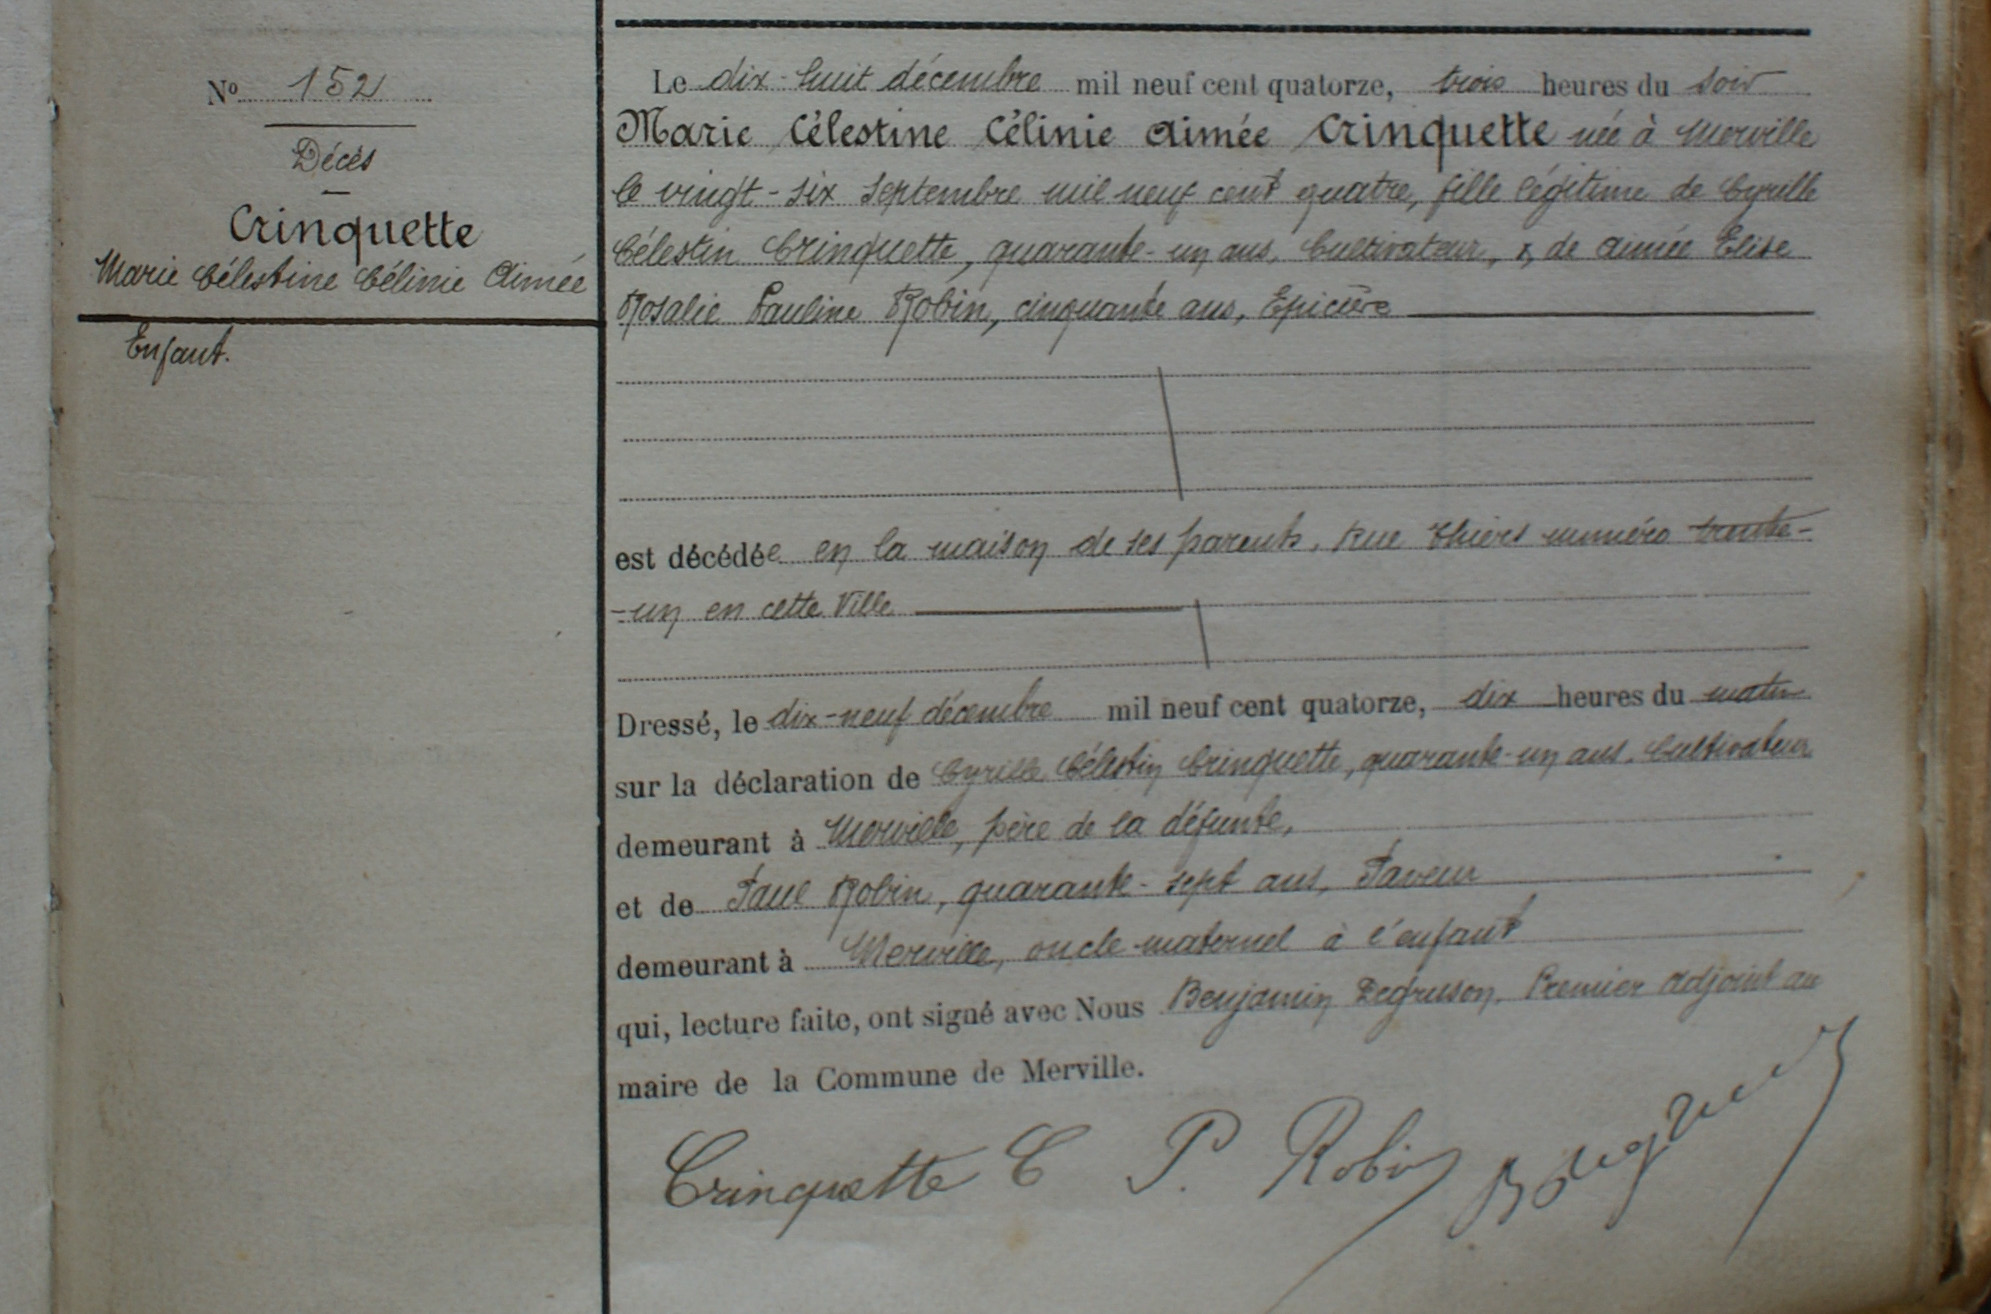 N° 152
Décès
Crinquette
Marie Célestine Célinie Aimée
Enfant.
Le dix-huit décembre mil neuf cent quatorze, trois heures du soir
Marie Célestine Célinie Aimée Crinquette née à Merville
le vingt-six septembre mil neuf cent quatre, fille légitime de Cyrille
Célestin Crinquette, quarante-un ans, Cultivateur, & de Aimée Elise
Rosalie Pauline Robin, cinquante ans, Epicière
est décédée en la maison de ses parents, Rue Thiers numéro trente-
-un en cette Ville
Dressé, le dix-neuf décembre mil neuf cent quatorze, dix heures du matin
sur la déclaration de Cyrille Célestin Crinquette, quarante-un ans, Cultivateur
demeurant à Merville, père de la défunte,
et de Paul Robin, quarante-sept ans, Paveur
demeurant à Merville, oncle maternel à l'enfant
qui, lecture faite, ont signé avec Nous Benjamin Degruson, Premier adjoint au
maire de la Commune de Merville.
Crinquette C P. Robin